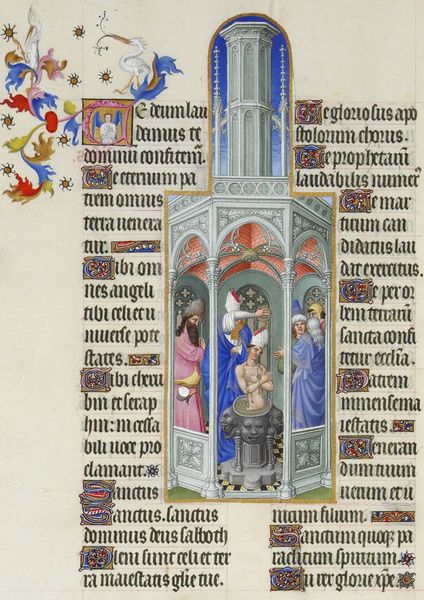 Te deum lau
damus te
dominū confitem̄.
Te eternum pa
trem omnis
terra venera
tur.
Tibi om
nes angeli
tibi celi et u
niverse pote
states.
Tibi cheru
bin et serap
hin: incessa
bili voce pro
clamant.
Sanctus
Sanctus. sanctus
dominus deus sabaoth
Pleni sunt celi et ter
ra maiestatis glīe tue.
Te gloriosus apo
stolorum chorus.
Te prophetarū
laudabilis numerꝰ
Te mar
tirum can
didatus lau
dat exercitus.
Te per or
bem terrarū
sancta confi
tetur ecclīa.
Patrem
immense ma
iestatis.
Veneran
dum tuum
verum et u
nicum filium.
Sanctum quoqꝫ pa
raclitum spiritum.
Tu rex glorie xp̄e.